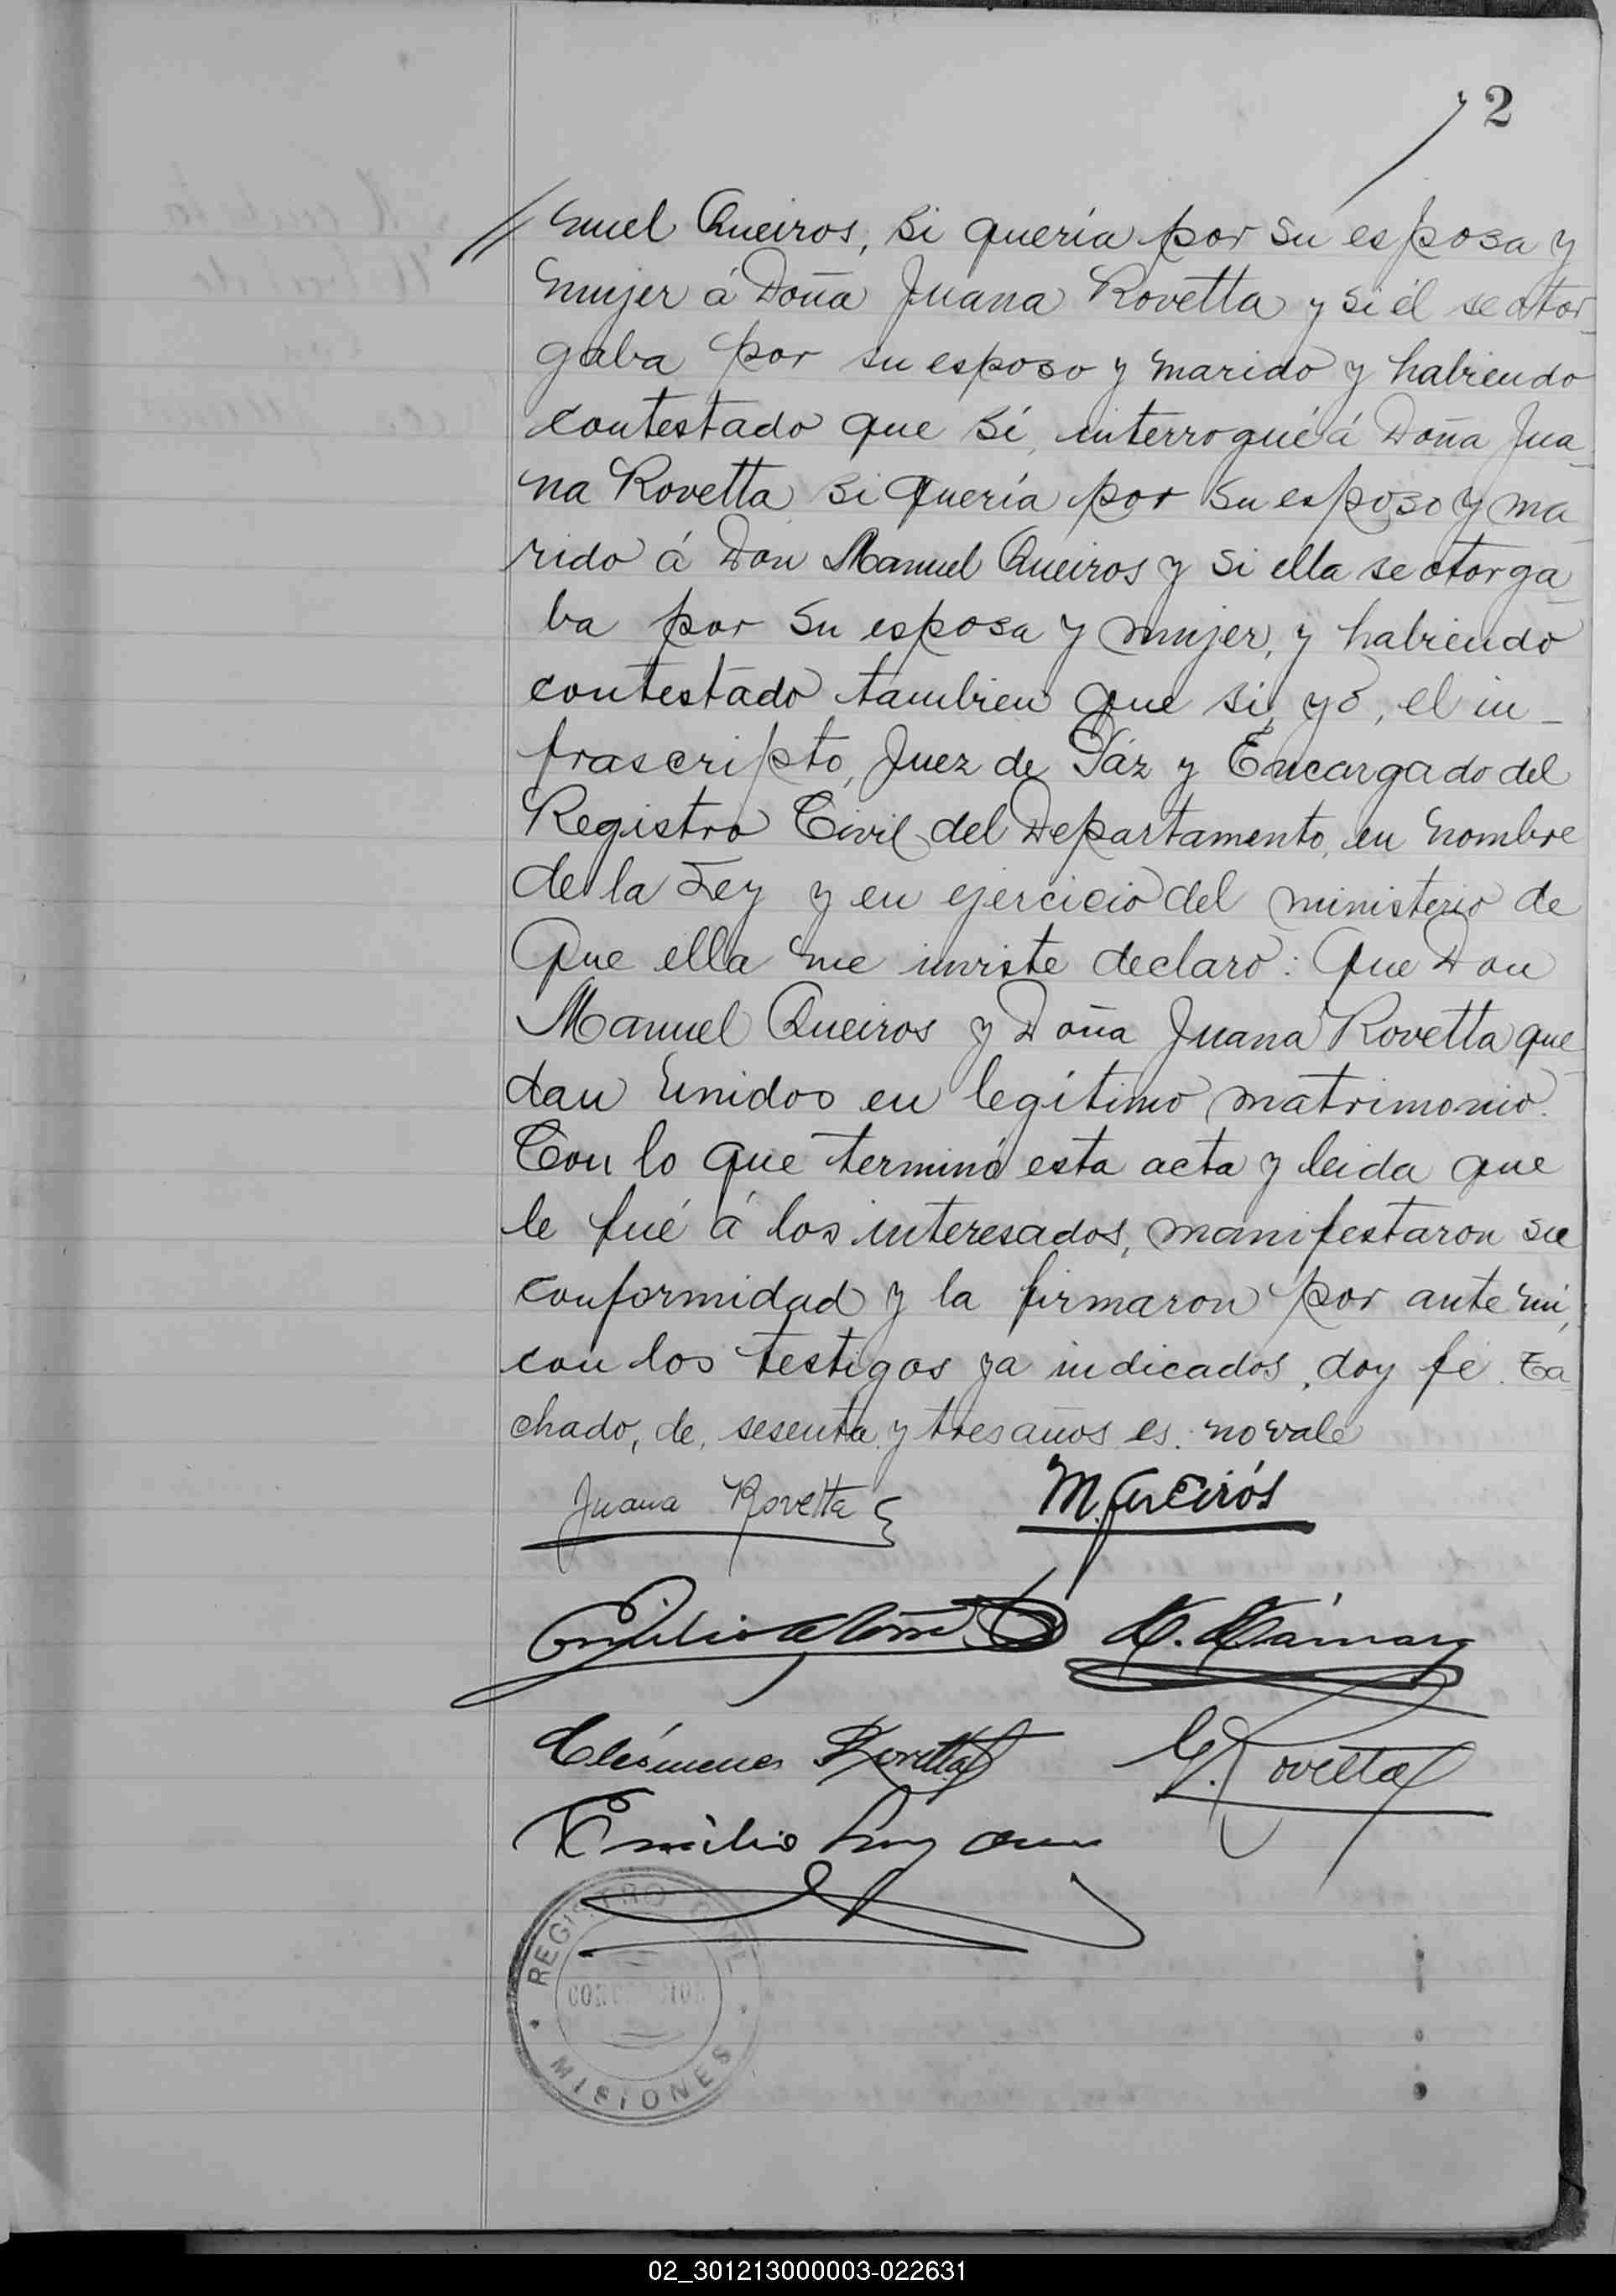 2
// nuel Queiros, si quería por su esposa y
mujer á Doña Juana Rovetta y si él se otor-
gaba por su esposo y marido y habiendo
contestado que sí, interrogué á Doña Jua-
na Rovetta si quería por su esposo y ma-
rido á Don Manuel Queiros y si ella se otorga-
ba por su esposa y mujer, y habiendo
contestado tambien que si, yo, el in-
frascripto, Juez de Páz y Encargado del
Registro Civil del Departamento, en nombre
de la Ley y en ejercicio del ministerio de
que ella me inviste declaro: Que Don
Manuel Queiros y Doña Juana Rovetta que-
dan unidos en legítimo matrimonio.
Con lo que terminó esta acta y leida que
le fué á los interesados, manifestaron su
conformidad y la firmaron por ante mi,
con los testigos ya indicados, doy fé. Ta-
chado, de, sesenta y tres años es. no vale
Juana Rovetta M. Queirós
Emilio
Rovetta G. Rovetta
Emilio
REGISTRO CIVIL
CONCEPCION
MISIONES
02_301213000003-022631